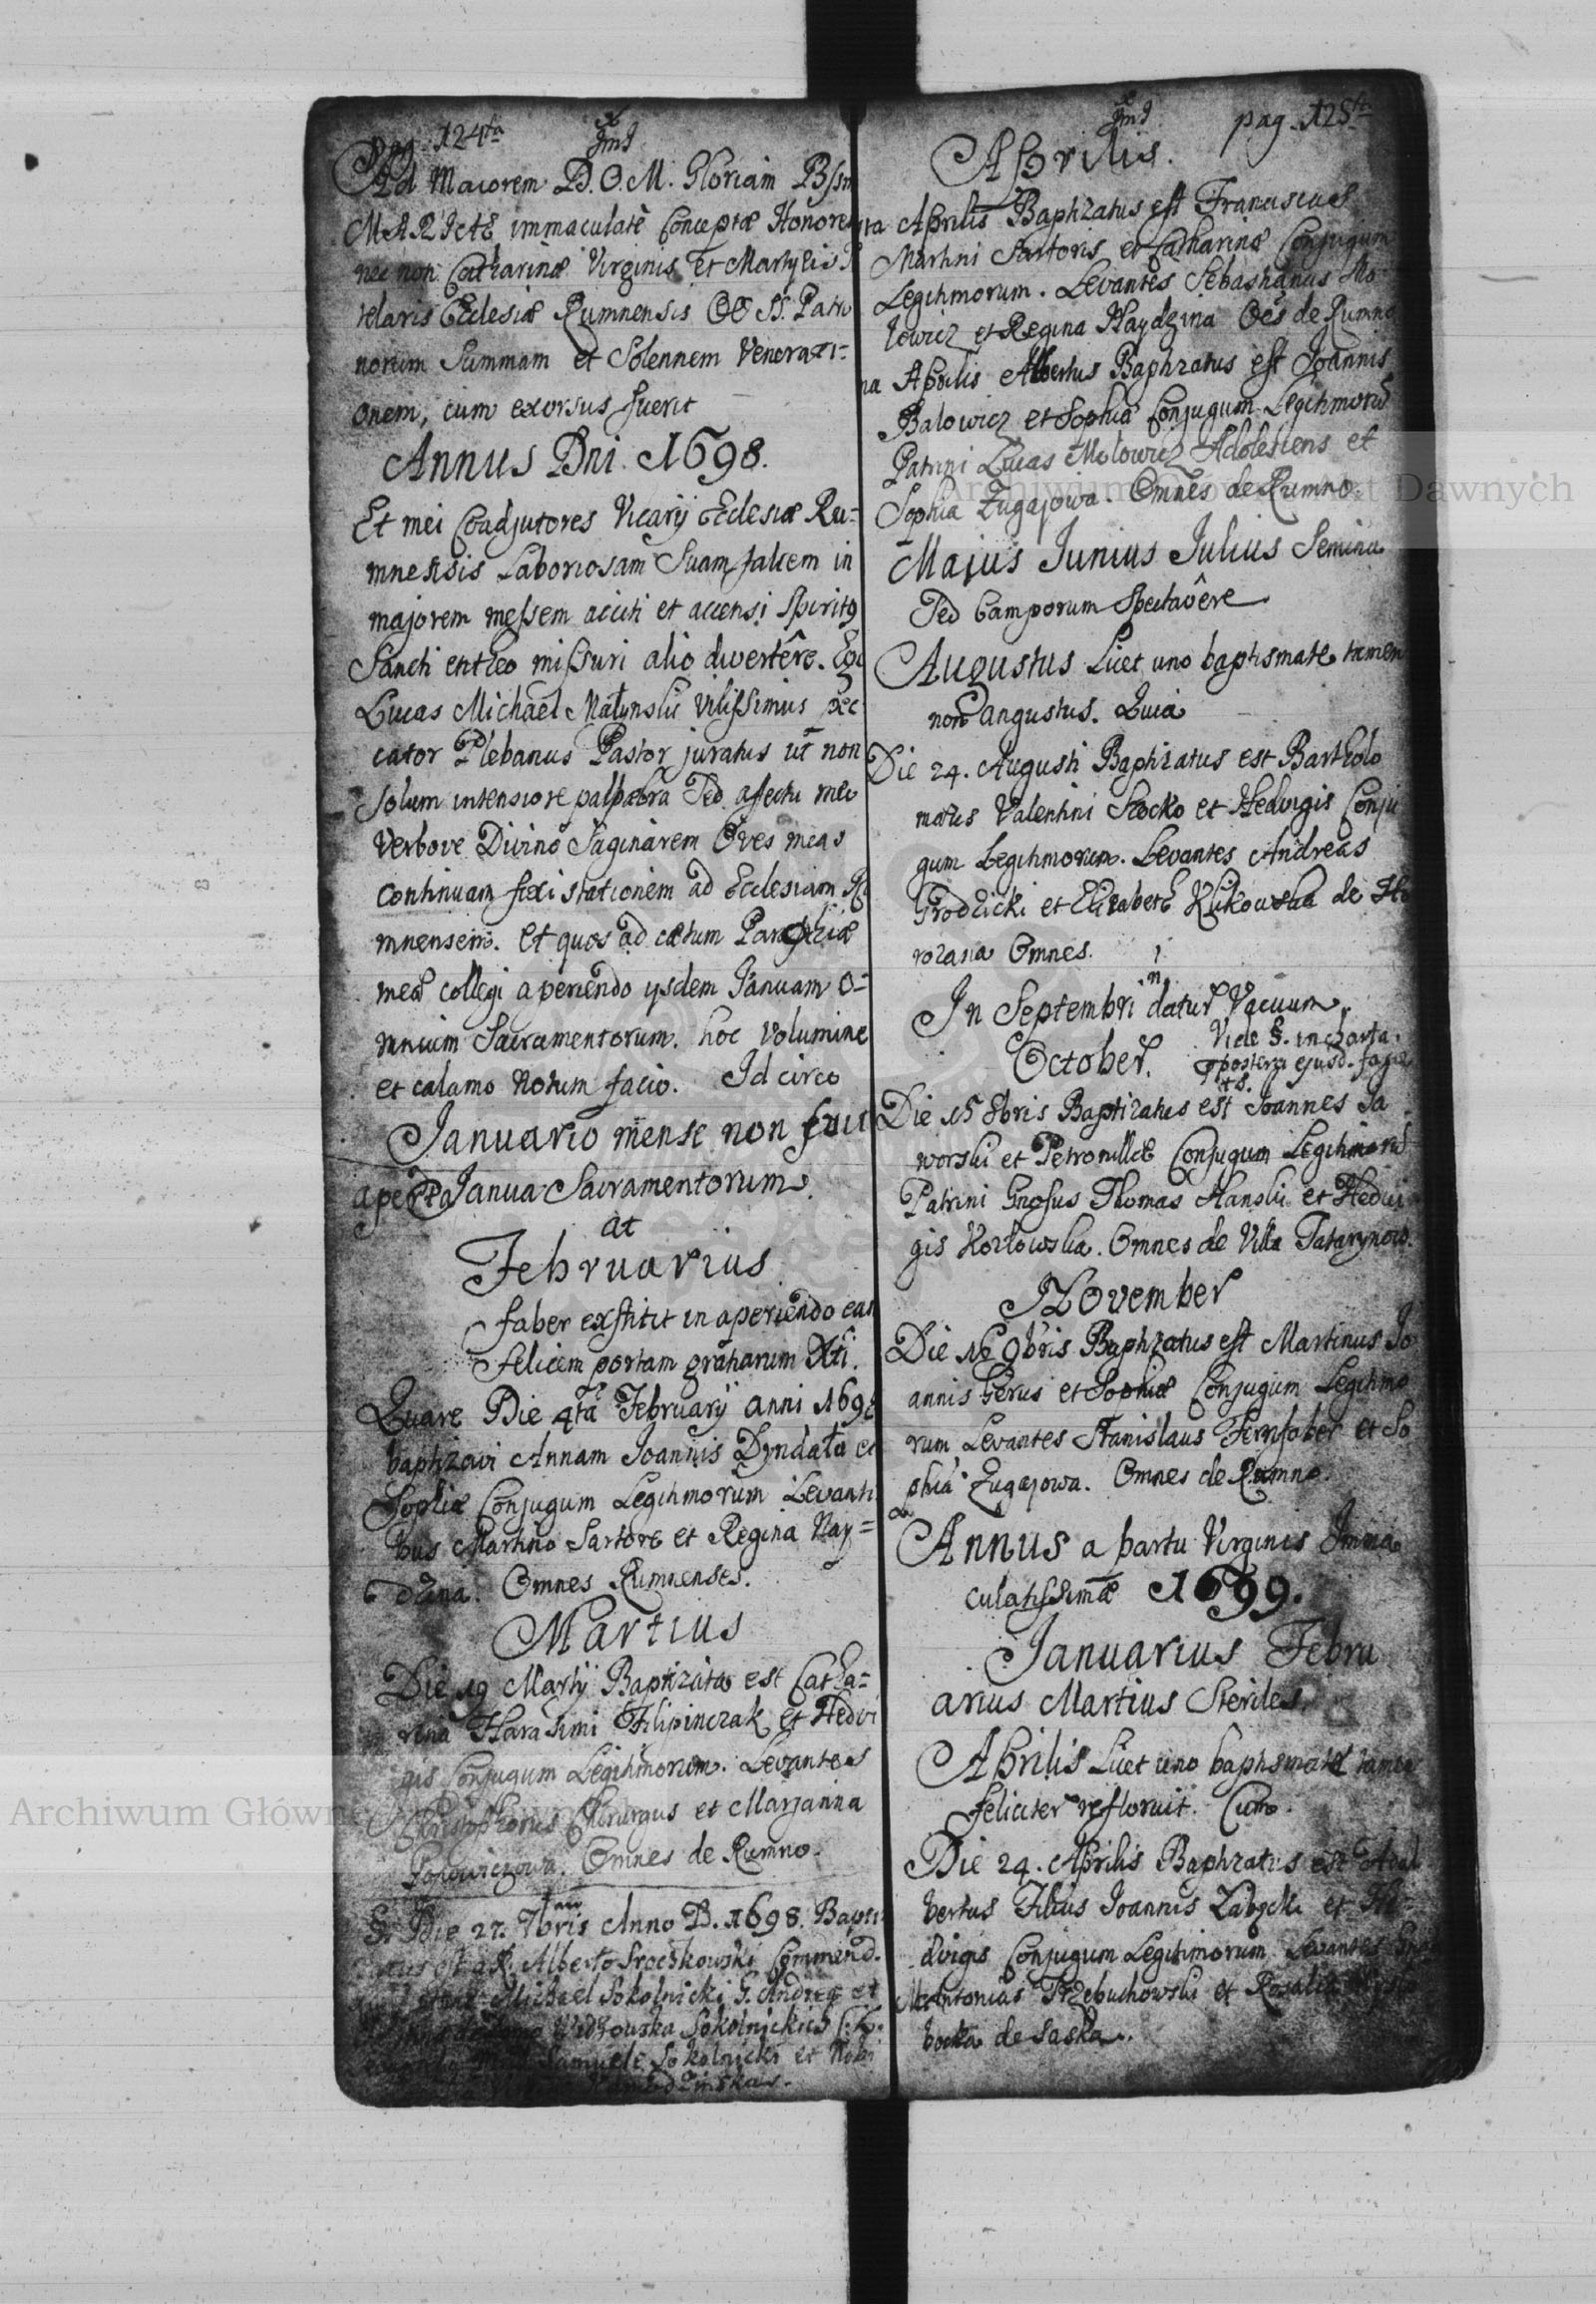 Pag. 124ta
Ad Maiorem D.O.M. Gloriam Bssm
MARIÆ immaculatè Conceptæ Honore
nec non Catharinæ Virginis et Martyris
telaris Ecclesiæ Rumnensis OO SS. Patro
norum Summam et Solennem Venerati=
onem, cum exorsus fuerit
Annus Dni. 1698.
Et mei Coadjutores Vicarÿ Ecclesiæ Ru=
mnensis Laboriosam Suam falcem in
majorem messem acciti et accensi Spirity
Sancti entheo missuri alio divertêre. Ego
Lucas Michael Małynski Vilissimus pec
cator Plebanus Pastor juratus ut non
Solum intensiore palpæbra Sed afectu meo
Verbove Divino Saginarem Oves meas
Continuam fixi stationem ad Ecclesiam R
mnensem. et quos ad cætum Parochiæ
meæ collegi aperiendo ysdem Januam O=
mnium Sacramentorum. hoc Volumine
et calamo Notum facio. Id circo
Januario mense non fuit
aperta Janua Sacramentorum.
at
Februarius
faber exstitit in aperiendo eam
felicem portam gratiarum Xti.
Quare Die 4ta Februarÿ anni 1698
baptizavi Annam Joannis Dyndała et
Sophiæ Conjugum Legitimorum Levanti
bus Martino Sartore et Regina Hay=
dzina. Omnes Rumnenses.
Martius
Die 19 Martÿ Baptizata est Catha=
rina Harasimi Filipinczak et Hedvi
gis Conjugum Legitimorum. Levantes
Christophorus Chirurgus et Marjanna
Popowiczowa. Omnes de Rumno.
§. Die 27. 7bris Anno D. 1698. Bapti
est a R. Alberto Sroczkowski Commend.
Michael Sokolnicki G. Andreæ et
Sokolnickich
Samuele Sokolnicki et
pag. 125ta
Aprilis.
ta Aprilis Baptizatus est Franciscus
Martini Sartoris et Catharinæ Conjugum
Legitimorum. Levantes Sebastianus Mo
lowicz et Regina Haydzina Oes de Rumno
na Aprilis Albertus Baptizatus est Joannis
Balowicz et Sophiæ Conjugum Legitimoru
Patrini Lucas Molowicz Adolescens et
Sophia Zugajowa. Omnes de Rumno.
Majus Junius Julius Semina
Sed Camporum Spectavêre
Augustus Licet uno baptismate tamen
non angustus. Quia
Die 24. Augusti Baptizatus est Bartholo
mæus Valentini Stocko et Hedvigis Conju
gum Legitimorum. Levantes Andreas
Grodzicki et Elizabeth Kukowska de Ho
rozana Omnes.
In Septembri datur Vacuum.
Vide §. in charta
October. posteri ejusd. fa
Die 15 8bris Baptizatus est Joannes Ja
worski et Petronillæ Conjugum Legitimoru
Patrini Gnosus Thomas Hanski et Hedvi
gis Kozłowska. Omnes de Villa Tatarynow.
November
Die 16 9bris Baptizatus est Martinus Jo
annis Gerus et Sophiæ Conjugum Legitimo
rum Levantes Stanislaus Ferrifaber et So
phia Zugajowa. Omnes de Rumno.
Annus a partu Virginis Imma
culatissimæ 1699.
Januarius Febru
arius Martius Steriles.
Aprilis Licet uno baptismate tamen
feliciter refloruit. Cum.
Die 24. Aprilis Baptizatus est Adal
bertus Filius Joannis Zabycki et He=
dvigis Conjugum Legitimorum Levantes
Antonius Trzebuchowski et Rosalia
bocka de Saska.
Archiwum Główne Akt Dawnych
Archiwum Główne Akt Dawnych